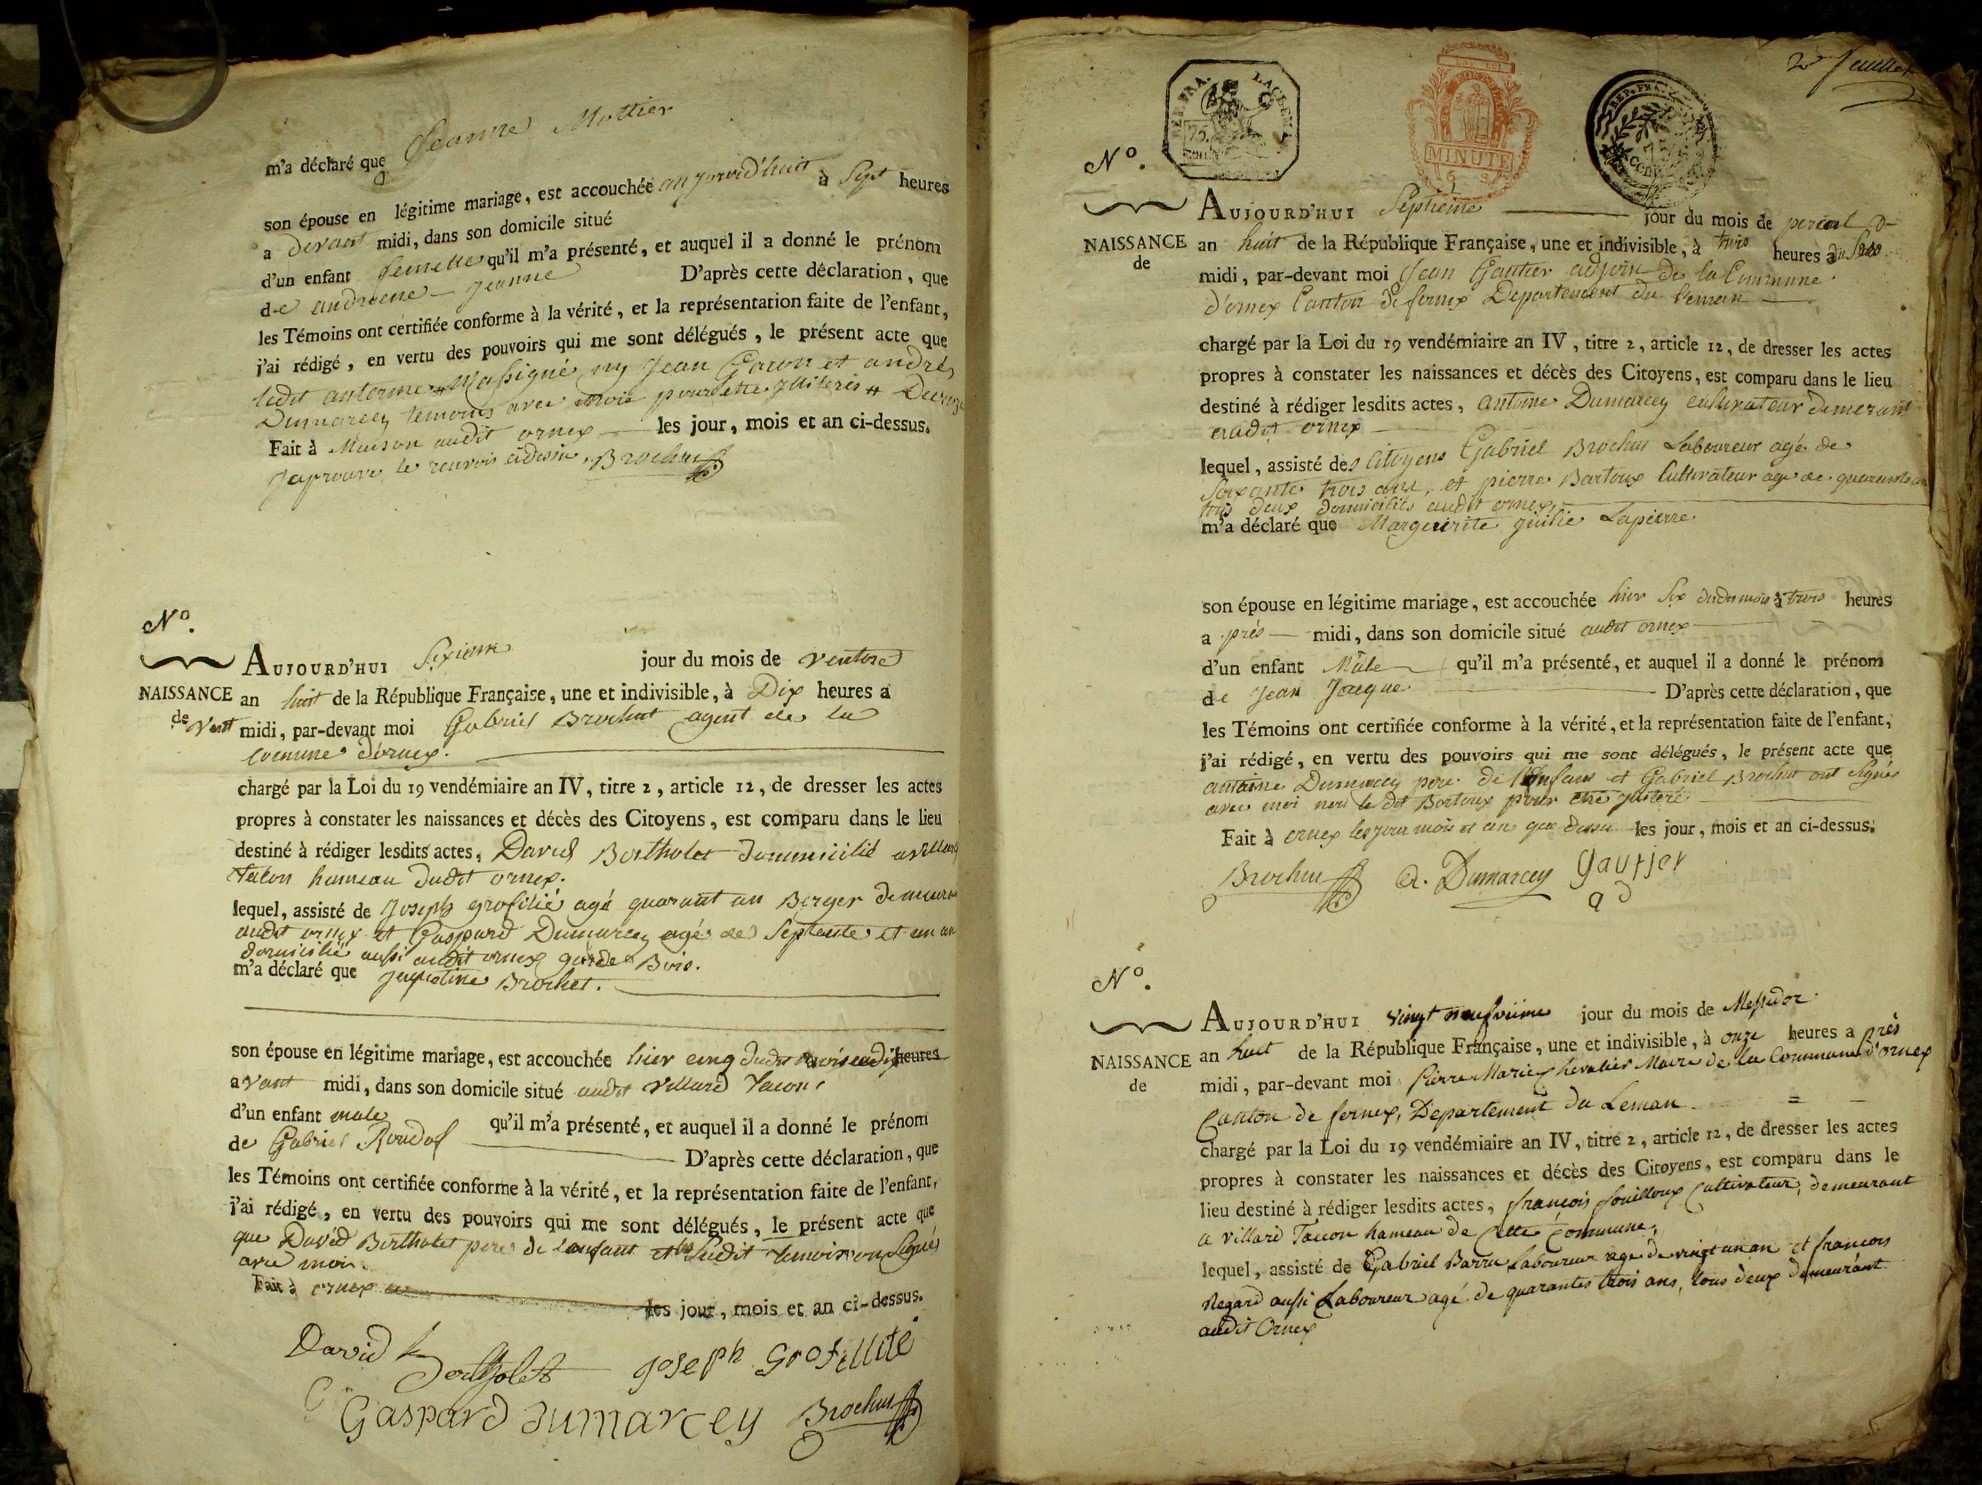 m'a déclaré que Jeanne Mottier
son épouse en légitime mariage, est accouchée aujourd'huit à Sept heures
a devant midi, dans son domicile situé
d'un enfant femelle qu'il m'a présenté, et auquel il a donné le prénom
de andriene Jeanne D'après cette déclaration, que
les Témoins ont certifiée conforme à la vérité, et la représentation faite de l'enfant,
j'ai rédigé, en vertu des pouvoirs qui me sont délégués, le présent acte que
ledit antoine ny Jean et andré
Dumarcey temoins avec moi pour
Fait à Maison audit ornex les jour, mois et an ci-dessus.
J'aprouve le renvois cidesu. Brochu
N°.
AUJOURD'HUI Sixieme jour du mois de ventose
NAISSANCE an huit de la République Française, une et indivisible, à Dix heures a
de vant midi, par-devant moi Gabriel Brochut agent de la
commune d'ornex.
chargé par la Loi du 19 vendémiaire an IV, titre 2, article 12, de dresser les actes
propres à constater les naissances et décès des Citoyens, est comparu dans le lieu
destiné à rédiger lesdits actes, David Bertholet domicilié a villard
Tacon hameau dudit ornex.
lequel, assisté de Joseph grofilié agé quarant un Berger demeurant
audit ornex et Gaspard Dumarcey agé de Septente et un an
domicilié aussi audit ornex garde Bois.
m'a déclaré que Jaqueline Brochet.
son épouse en légitime mariage, est accouchée hier cinq dudit mois a dix heures
avant midi, dans son domicile situé audit villard Tacon
d'un enfant male qu'il m'a présenté, et auquel il a donné le prénom
de Gabriel D'après cette déclaration, que
les Témoins ont certifiée conforme à la vérité, et la représentation faite de l'enfant,
j'ai rédigé, en vertu des pouvoirs qui me sont délégués, le présent acte que
que David Bertholet pere de l'enfant et les Sudit temoins on Signés
avec moi.
Fait à ornex les jour, mois et an ci-dessus.
David Bertholet Joseph grofillié
Gaspard Dumarcey Brochu
2e feuillet
REP. FRA. 75
MINUTE
REP. FRA.
N°.
AUJOURD'HUI Septieme jour du mois de
NAISSANCE an huit de la République Française, une et indivisible, à trois heures du Soir
de midi, par-devant moi Jean Gautier adjoin de la Commune
D'ornex Canton de fernex Departement du Leman
chargé par la Loi du 19 vendémiaire an IV, titre 2, article 12, de dresser les actes
propres à constater les naissances et décès des Citoyens, est comparu dans le lieu
destiné à rédiger lesdits actes, antoine Dumarcey cultivateur demeurant
audit ornex
lequel, assisté des Citoyens Gabriel Brochu Laboureur agé de
Soixante trois ans, et pierre Bartoux Cultivateur age de quarante an
tous deux domiciliés audit ornex
m'a déclaré que Marguerite julie Lapierre
son épouse en légitime mariage, est accouchée hier Six dudu mois à trois heures
a prés midi, dans son domicile situé audit ornex
d'un enfant Mâle qu'il m'a présenté, et auquel il a donné le prénom
de Jean Jacque D'après cette déclaration, que
les Témoins ont certifiée conforme à la vérité, et la représentation faite de l'enfant,
j'ai rédigé, en vertu des pouvoirs qui me sont délégués, le présent acte que
antoine Dumarcey pere de l'Enfant et Gabriel Brochut ont Signés
avec moi non le dit Bartoux pour etre
Fait à ornex les jour mois et an que dessu les jour, mois et an ci-dessus.
Brochu A. Dumarcey gautier
ad
N°.
AUJOURD'HUI vingt neufvieme jour du mois de Messidor
NAISSANCE an huit de la République Française, une et indivisible, à onze heures a près
de midi, par-devant moi Pierre Marie Chevalier Maire de la Commune d'ornex
Canton de fernex, Departement du Leman
chargé par la Loi du 19 vendémiaire an IV, titre 2, article 12, de dresser les actes
propres à constater les naissances et décès des Citoyens, est comparu dans le
lieu destiné à rédiger lesdits actes, francois fouilloux Cultivateur, demeurant
a villard Tacon hameau de Cette Commune,
lequel, assisté de Gabriel Barru Laboureur age de vingt un an et francois
Regard aussi Laboureur agé de quarantes trois ans, tous deux demeurant
audit Ornex